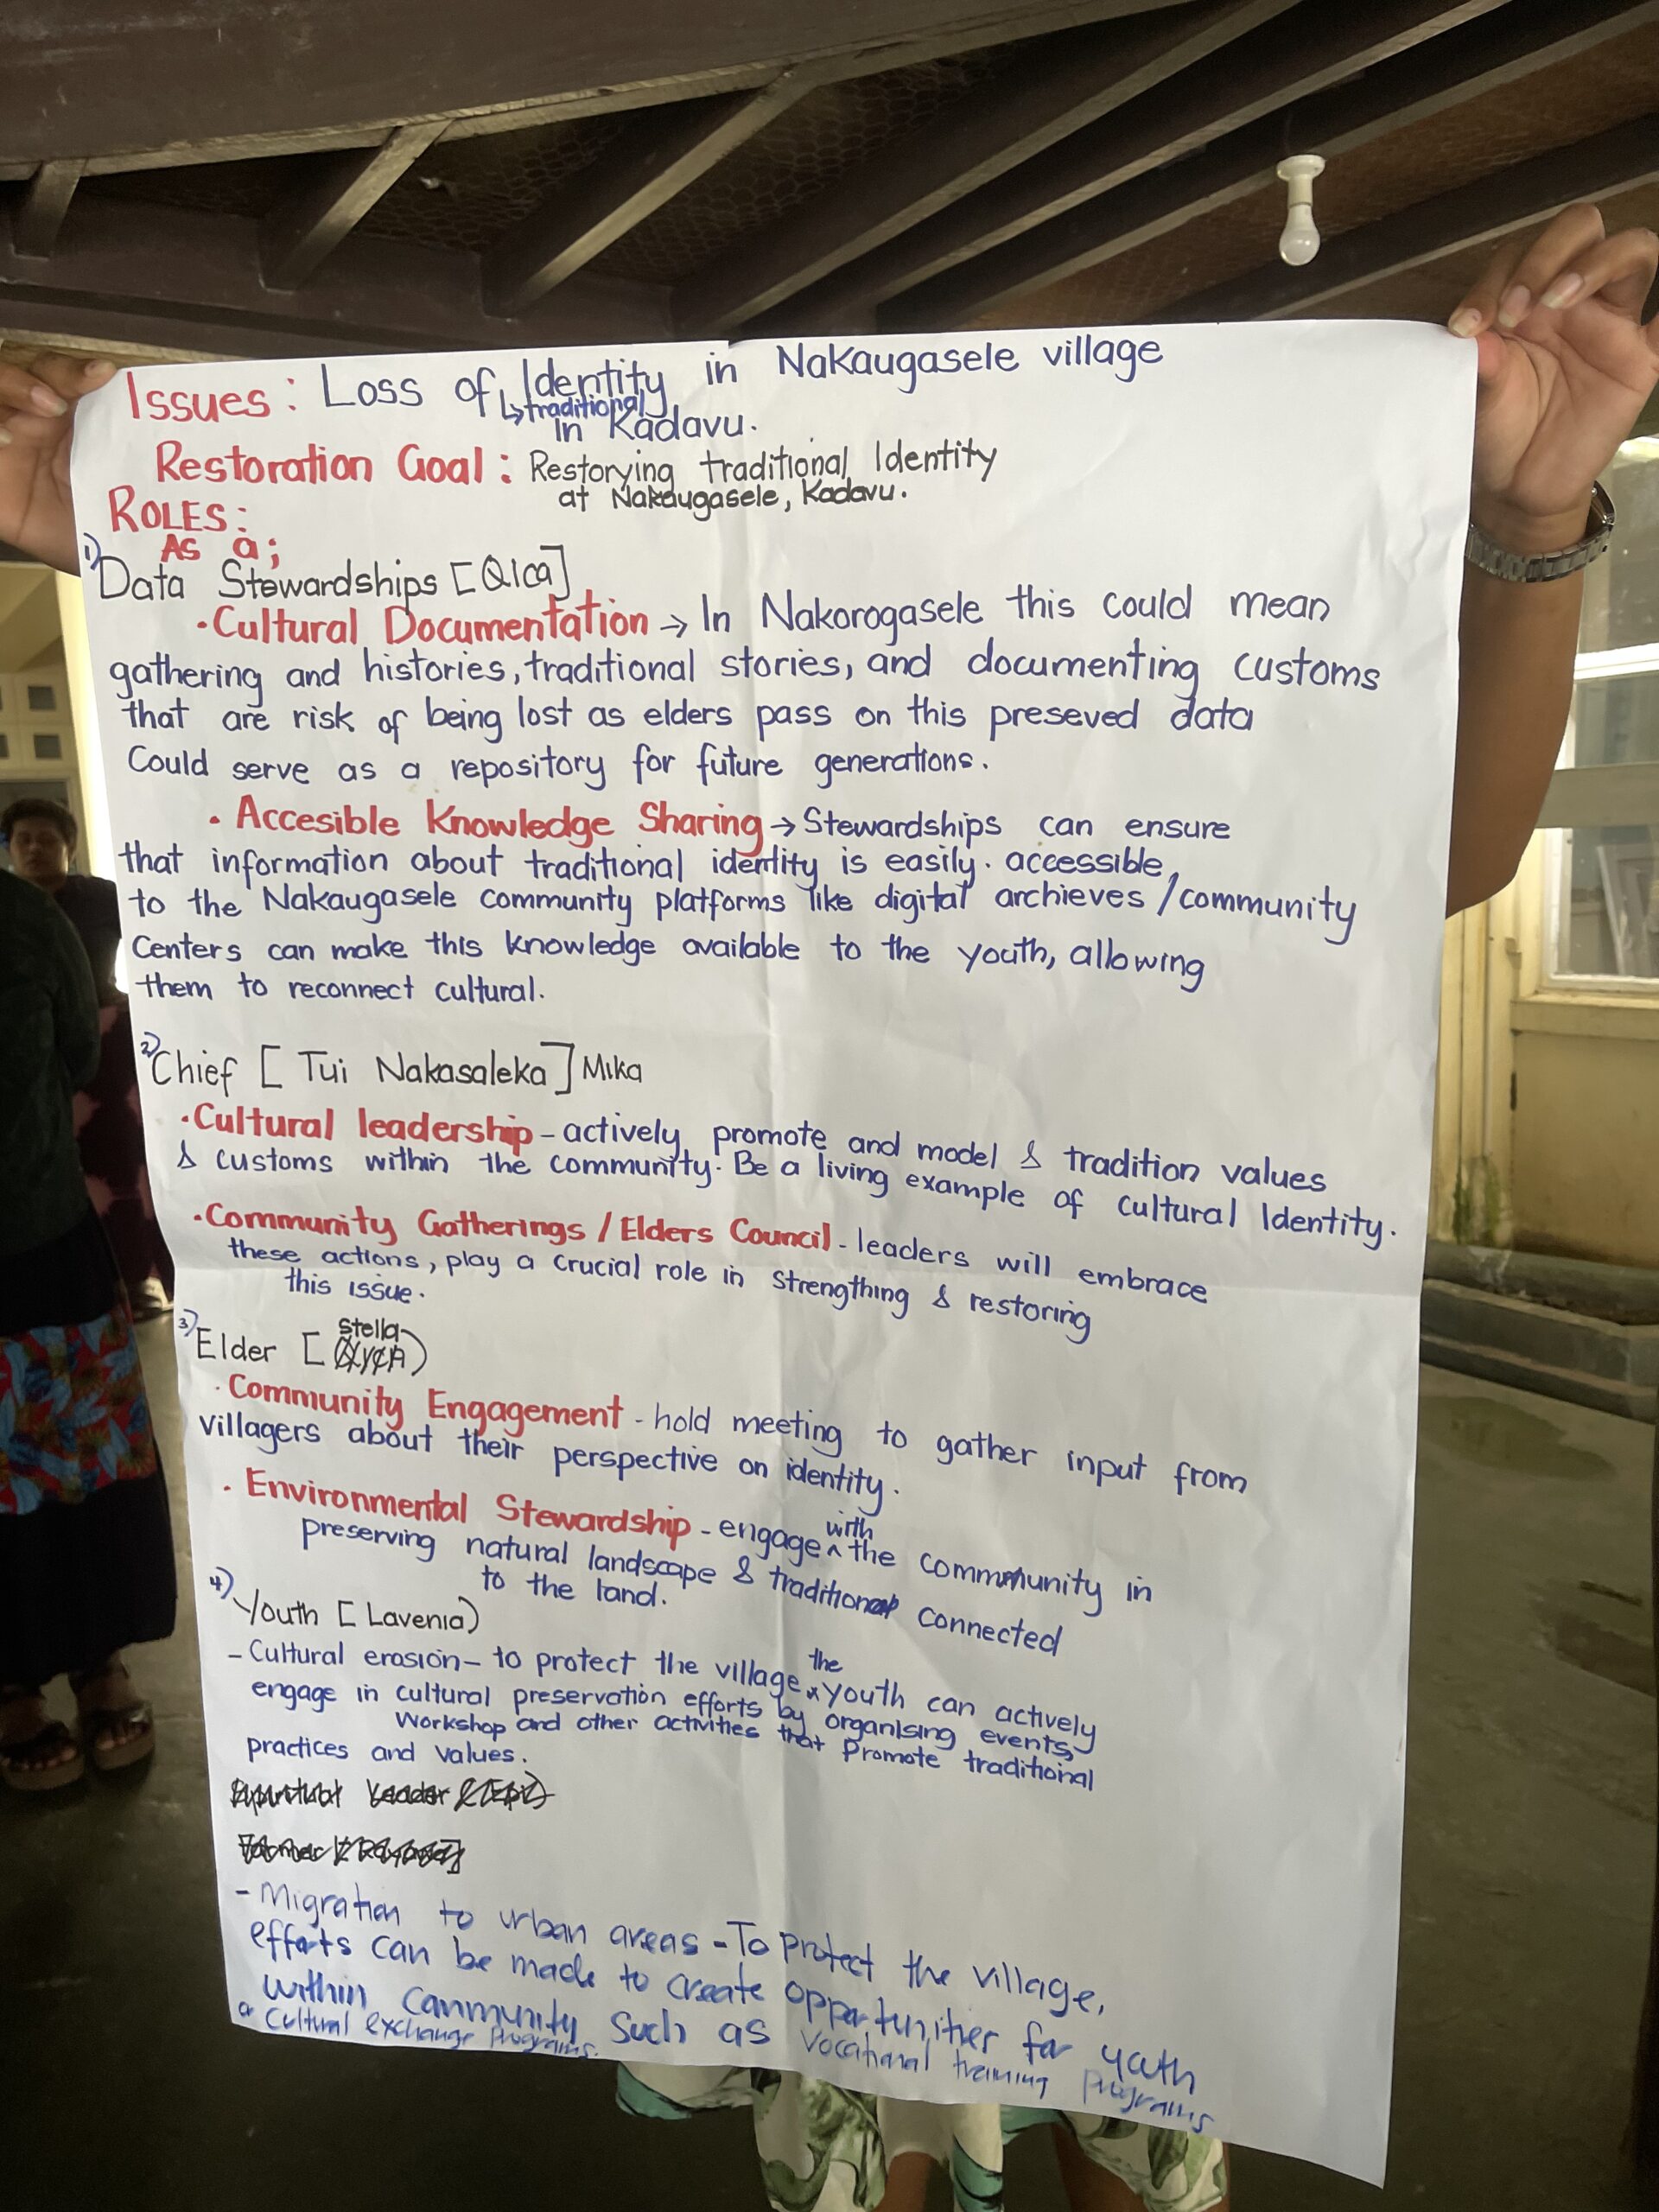 Issues: Loss of Identity in Nakaugasele village
↳ traditional
in Kadavu.
Restoration Goal: Restorying traditional Identity
at Nakaugasele, Kadavu.
ROLES:
As a;
1) Data Stewardships [Qica]
• Cultural Documentation → In Nakorogasele this could mean
gathering and histories, traditional stories, and documenting customs
that are risk of being lost as elders pass on this preseved data
Could serve as a repository for future generations.
• Accesible Knowledge Sharing → Stewardships can ensure
that information about traditional identity is easily. accessible,
to the Nakaugasele community platforms like digital archieves / community
Centers can make this knowledge available to the youth, allowing
them to reconnect cultural.
2) Chief [Tui Nakasaleka] Mika
• Cultural leadership - actively promote and model & tradition values
& customs within the community. Be a living example of cultural Identity.
• Community Gatherings / Elders Council - leaders will embrace
these actions, play a crucial role in strengthing & restoring
this issue.
3) Elder [Stella)
• Community Engagement - hold meeting to gather input from
villagers about their perspective on identity.
• Environmental Stewardship - engage with the community in
preserving natural landscape & traditional connected
to the land.
4) Youth [Lavenia)
- Cultural erosion - to protect the village the youth can actively
engage in cultural preservation efforts by organising events,
Workshop and other activities that Promote traditional
practices and values.
- Migration to urban areas - To protect the village,
efforts can be made to create opportunities for youth
within community such as vocational training programs
or Cultural exchange programs.